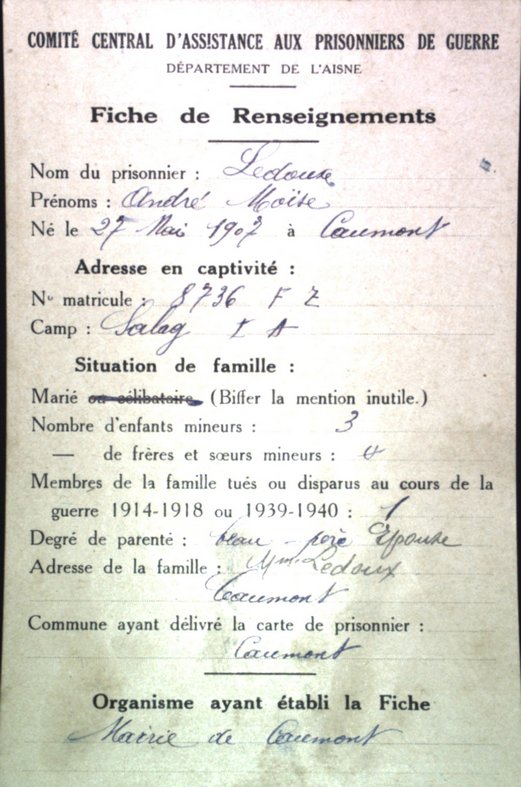 COMITÉ CENTRAL D'ASSISTANCE AUX PRISONNIERS DE GUERRE
DÉPARTEMENT DE L'AISNE
Fiche de Renseignements
Nom du prisonnier : Ledoux
Prénoms : André Moïse
Né le 27 Mai 1907 à Caumont
Adresse en captivité :
No matricule : 8736 F Z
Camp : Salag I A
Situation de famille :
Marié ou célibataire (Biffer la mention inutile.)
Nombre d'enfants mineurs : 3
— de frères et sœurs mineurs :
Membres de la famille tués ou disparus au cours de la
guerre 1914-1918 ou 1939-1940 : 1
Degré de parenté : beau-père Epouse
Adresse de la famille : Mme Ledoux
Caumont
Commune ayant délivré la carte de prisonnier :
Caumont
Organisme ayant établi la Fiche
Mairie de Caumont